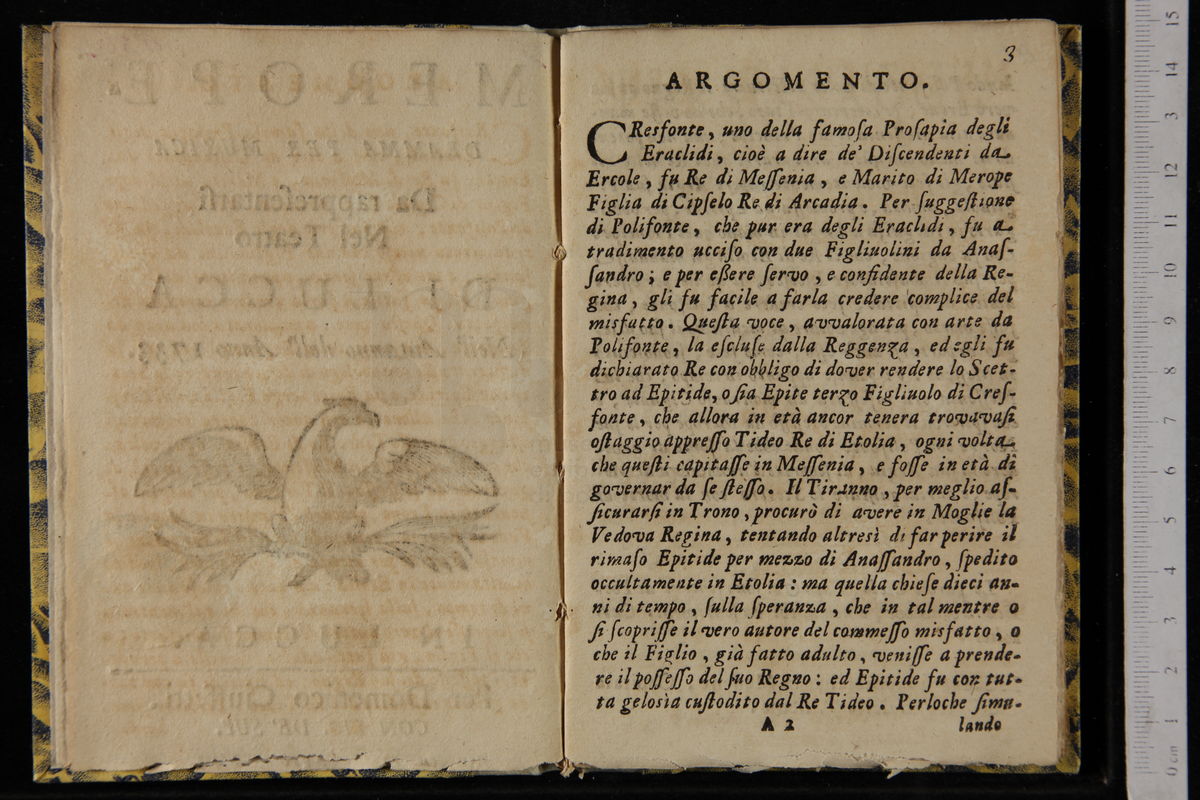 3
ARGOMENTO.
CResfonte, uno della famoſa Proſapia degli
Eraclidi, cioè a dire de' Diſcendenti da
Ercole, fu Re di Meſſenia, e Marito di Merope
Figlia di Cipſelo Re di Arcadia. Per ſuggeſtione
di Polifonte, che pur era degli Eraclidi, fu a
tradimento ucciſo con due Figliuolini da Anaſ-
ſandro; e per eßere ſervo, e confidente della Re-
gina, gli fu facile a farla credere complice del
misfatto. Queſta voce, avvalorata con arte da
Polifonte, la eſcluſe dalla Reggenza, ed egli fu
dichiarato Re con obbligo di dover rendere lo Scet-
tro ad Epitide, o ſia Epite terzo Figliuolo di Creſ-
fonte, che allora in età ancor tenera trovavaſi
oſtaggio appreſſo Tideo Re di Etolia, ogni volta
che queſti capitaſſe in Meſſenia, e foſſe in età di
governar da ſe ſteſſo. Il Tiranno, per meglio aſ-
ſicurarſi in Trono, procurò di avere in Moglie la
Vedova Regina, tentando altresì di far perire il
rimaſo Epitide per mezzo di Anaſſandro, ſpedito
occultamente in Etolia: ma quella chieſe dieci an-
ni di tempo, ſulla ſperanza, che in tal mentre o
ſi ſcopriſſe il vero autore del commeſſo misfatto, o
che il Figlio, già fatto adulto, veniſſe a prende-
re il poſſeſſo del ſuo Regno: ed Epitide fu con tut-
ta gelosìa cuſtodito dal Re Tideo. Perloche ſimu-
A 2 lando